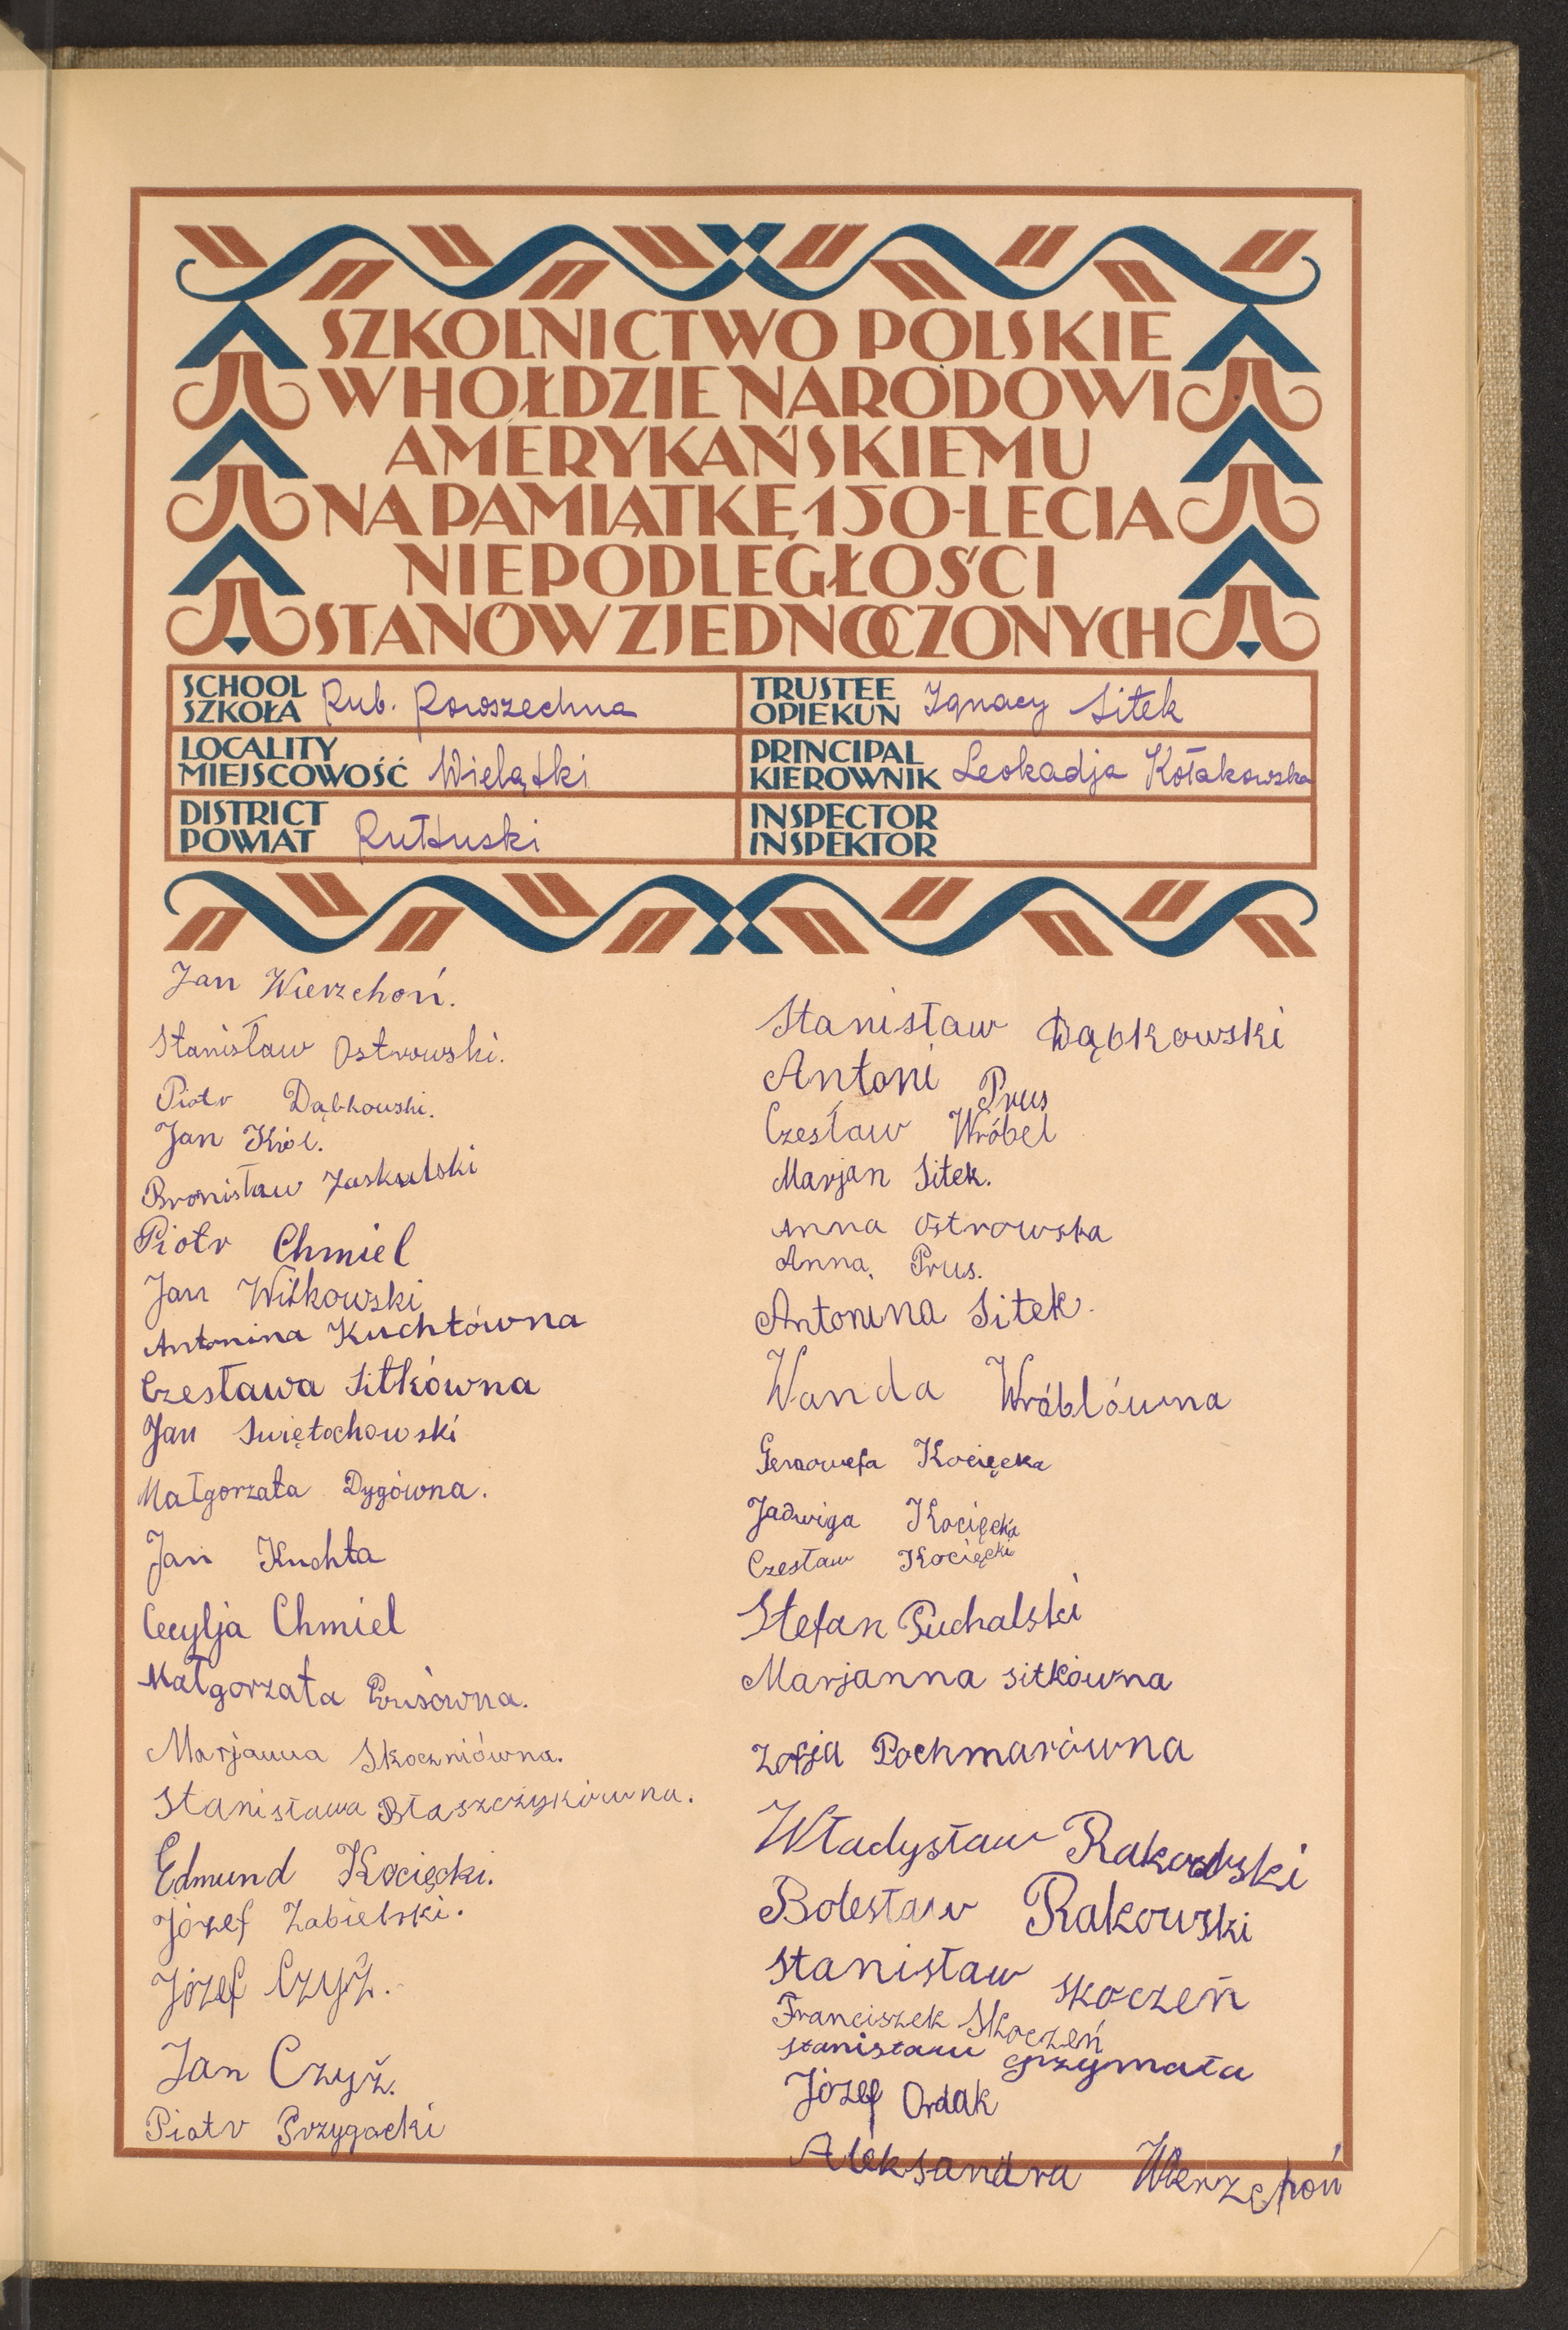 SZKOLNICTWO POLSKIE
W HOŁDZIE NARODOWI
AMERYKAŃSKIEMU
NA PAMIĄTKĘ 150-LECIA
NIEPODLEGŁOŚCI
STANÓW ZJEDNOCZONYCH
SCHOOL
SZKOŁA Pub. Powszechna
TRUSTEE
OPIEKUN Ignacy Sitek
LOCALITY
MIEJSCOWOŚĆ Wielątki
PRINCIPAL
KIEROWNIK Leokadja Kołakowska
DISTRICT
POWIAT Pułtuski
INSPECTOR
INSPEKTOR
Jan Wierzchoń.
Stanisław Ostrowski.
Piotr Dąbkowski.
Jan Król.
Bronisław Jaskulski
Piotr Chmiel
Jan Witkowski
Antonina Kuchtówna
Czesława Sitkówna
Jan Swiętochowski
Małgorzata Dygówna.
Jan Kuchta
Cecylja Chmiel
Małgorzata Prusówna.
Marjanna Skoczniówna.
Stanisława Błaszczykówna.
Edmund Kocięcki.
Józef Zabielski.
Józef Czyż.
Jan Czyż.
Piotr Przygocki
Stanisław Dąbkowski
Antoni Prus
Czesław Wróbel
Marjan Sitek.
Anna Ostrowska
Anna Prus.
Antonina Sitek.
Wanda Wróblówna
Genowefa Kocięcka
Jadwiga Kocięcka
Czesław Kocięcki
Stefan Puchalski
Marjanna sitkówna
Zofja Pochmarówna
Władysław Rakowski
Bolesław Rakowski
Stanisław Skoczeń
Franciszek Skoczeń
Stanisław Grzymała
Józef Ordak
Aleksandra Wierzchoń